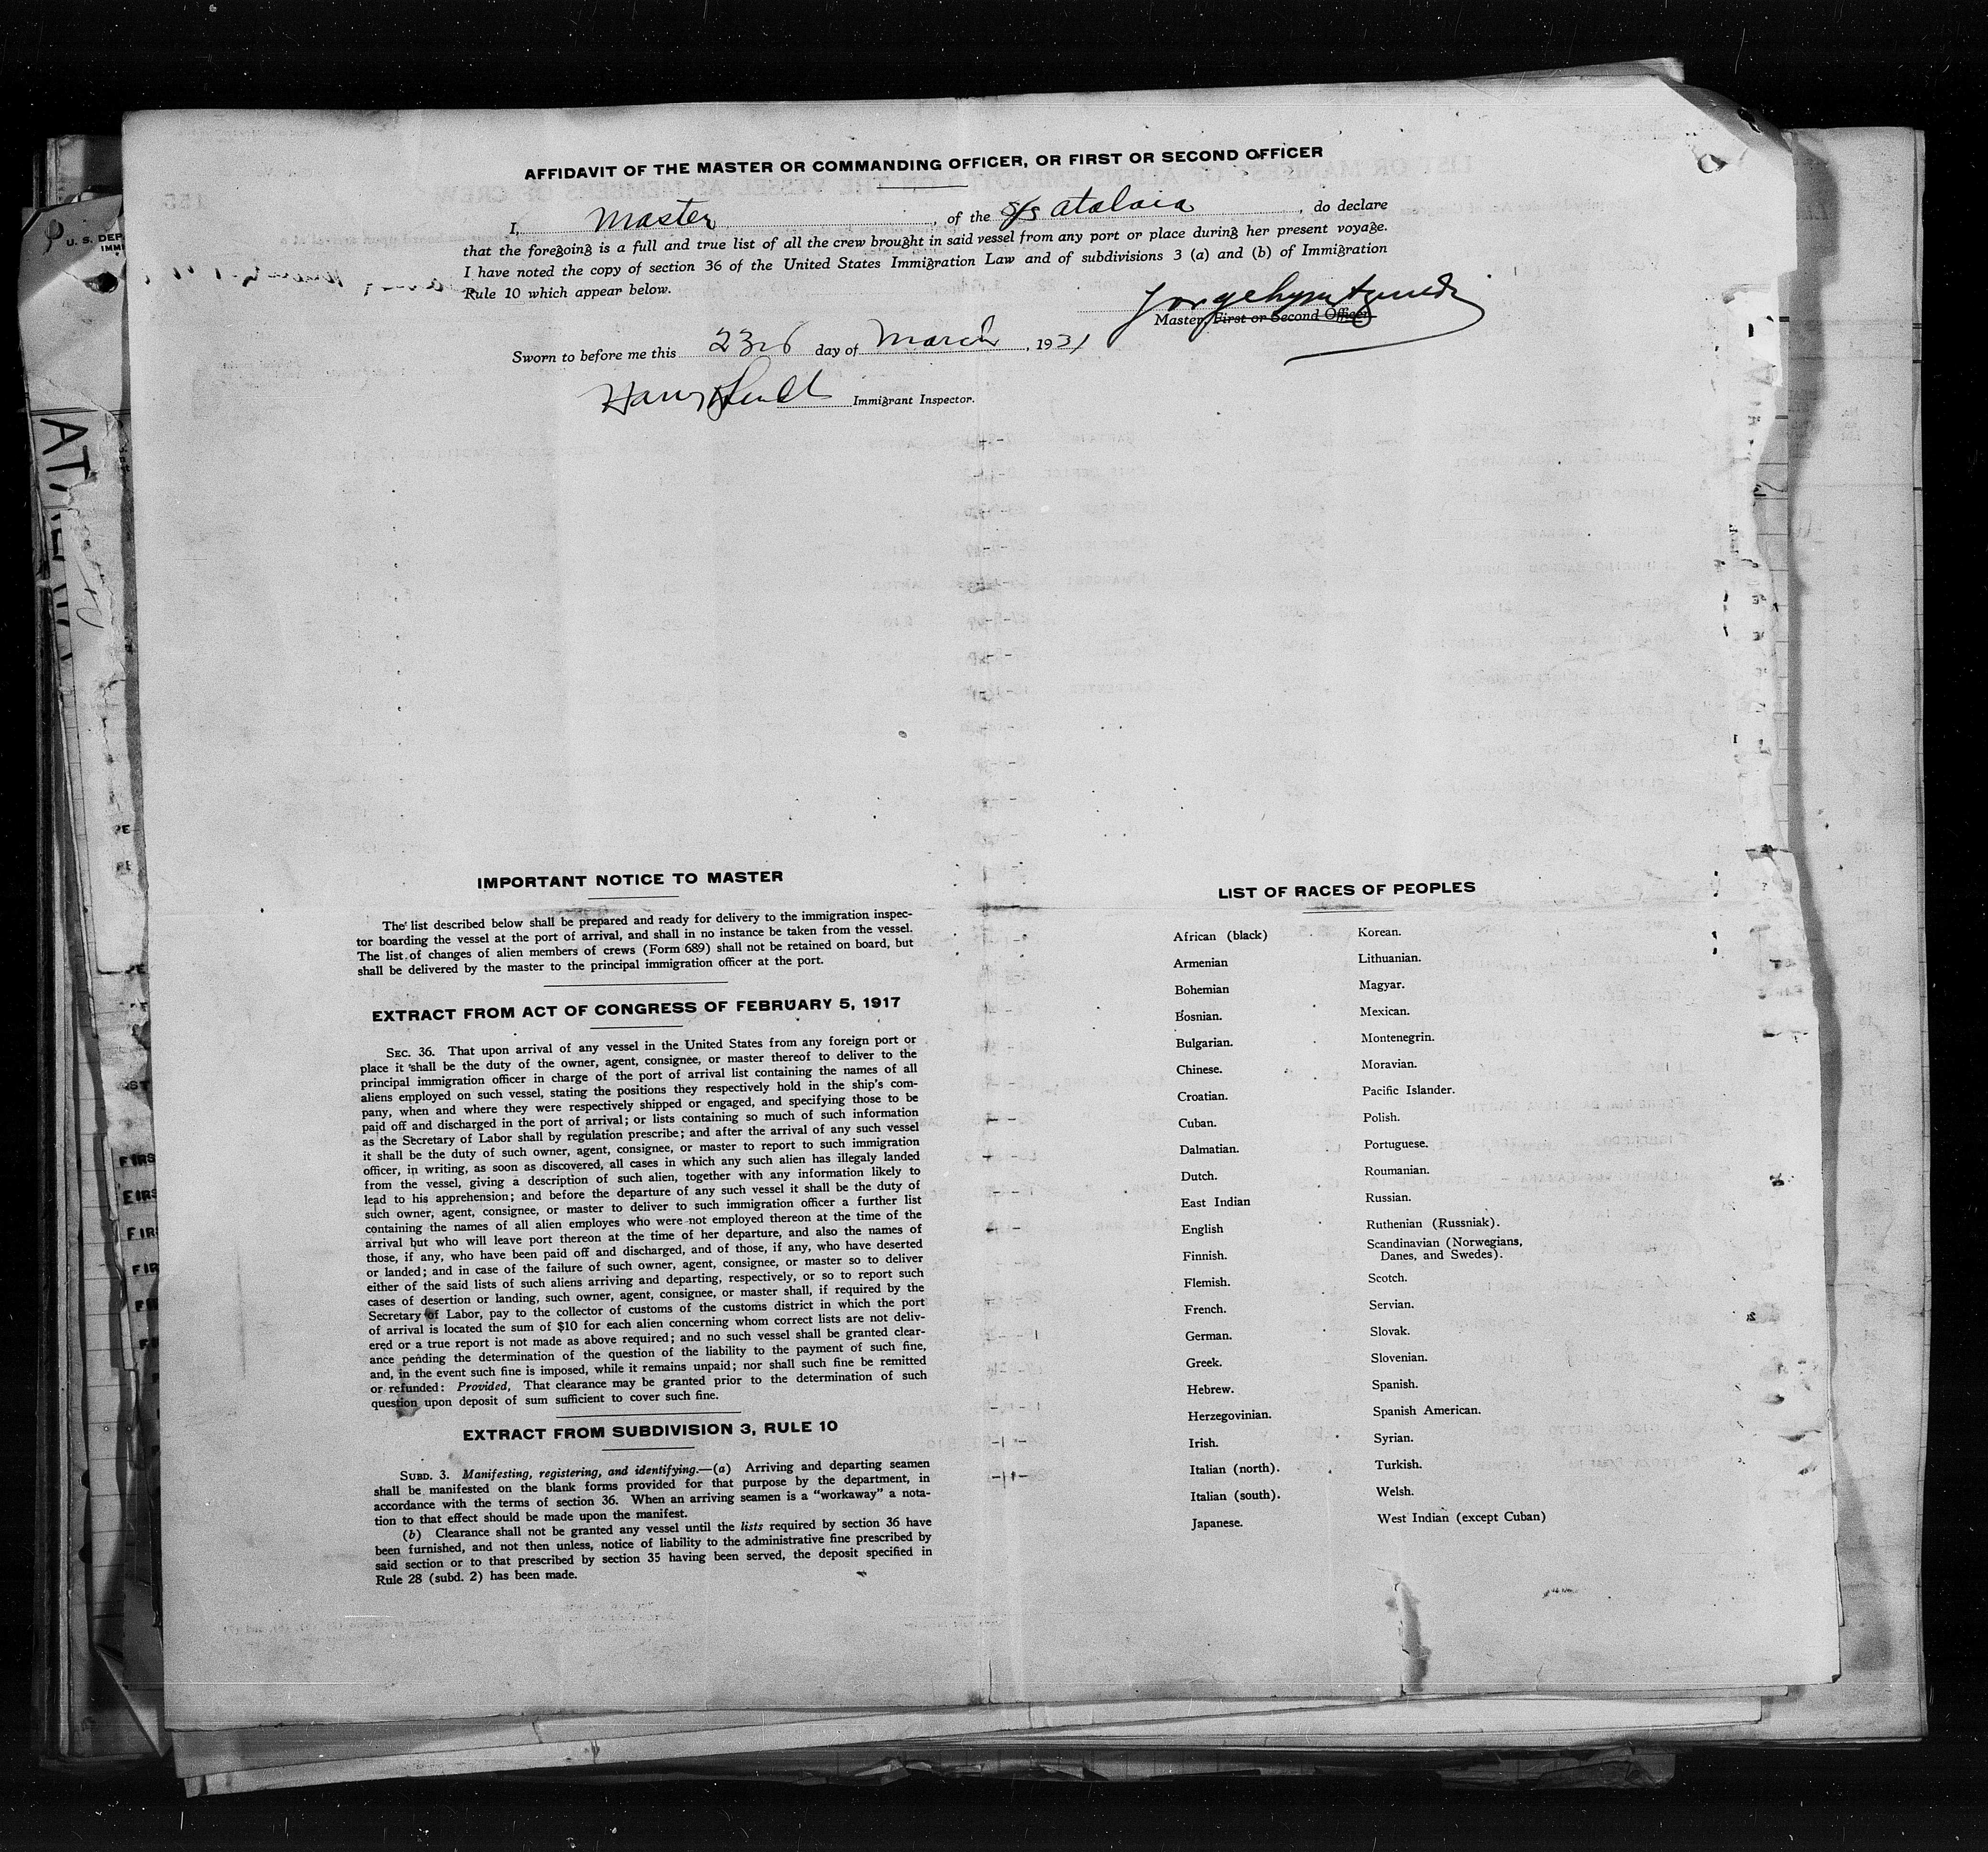 AFFIDAVIT OF THE MASTER OR COMMANDING OFFICER, OR FIRST OR SECOND OFFICER
I, Master, of the S/S Atalaia, do declare
that the foregoing is a full and true list of all the crew brought in said vessel from any port or place during her present voyage.
I have noted the copy of section 36 of the United States Immigration Law and of subdivisions 3 (a) and (b) of Immigration
Rule 10 which appear below.
Master, First or Second Officer.
Sworn to before me this 23rd day of March, 1931
Harry Immigrant Inspector.
IMPORTANT NOTICE TO MASTER
The list described below shall be prepared and ready for delivery to the immigration inspec-
tor boarding the vessel at the port of arrival, and shall in no instance be taken from the vessel.
The list of changes of alien members of crews (Form 689) shall not be retained on board, but
shall be delivered by the master to the principal immigration officer at the port.
EXTRACT FROM ACT OF CONGRESS OF FEBRUARY 5, 1917
SEC. 36. That upon arrival of any vessel in the United States from any foreign port or
place it shall be the duty of the owner, agent, consignee, or master thereof to deliver to the
principal immigration officer in charge of the port of arrival list containing the names of all
aliens employed on such vessel, stating the positions they respectively hold in the ship's com-
pany, when and where they were respectively shipped or engaged, and specifying those to be
paid off and discharged in the port of arrival; or lists containing so much of such information
as the Secretary of Labor shall by regulation prescribe; and after the arrival of any such vessel
it shall be the duty of such owner, agent, consignee, or master to report to such immigration
officer, in writing, as soon as discovered, all cases in which any such alien has illegaly landed
from the vessel, giving a description of such alien, together with any information likely to
lead to his apprehension; and before the departure of any such vessel it shall be the duty of
such owner, agent, consignee, or master to deliver to such immigration officer a further list
containing the names of all alien employes who were not employed thereon at the time of the
arrival but who will leave port thereon at the time of her departure, and also the names of
those, if any, who have been paid off and discharged, and of those, if any, who have deserted
or landed; and in case of the failure of such owner, agent, consignee, or master so to deliver
either of the said lists of such aliens arriving and departing, respectively, or so to report such
cases of desertion or landing, such owner, agent, consignee, or master shall, if required by the
Secretary of Labor, pay to the collector of customs of the customs district in which the port
of arrival is located the sum of $10 for each alien concerning whom correct lists are not deliv-
ered or a true report is not made as above required; and no such vessel shall be granted clear-
ance pending the determination of the question of the liability to the payment of such fine,
and, in the event such fine is imposed, while it remains unpaid; nor shall such fine be remitted
or refunded: Provided, That clearance may be granted prior to the determination of such
question upon deposit of sum sufficient to cover such fine.
EXTRACT FROM SUBDIVISION 3, RULE 10
SUBD. 3. Manifesting, registering, and identifying.—(a) Arriving and departing seamen
shall be manifested on the blank forms provided for that purpose by the department, in
accordance with the terms of section 36. When an arriving seamen is a "workaway" a nota-
tion to that effect should be made upon the manifest.
(b) Clearance shall not be granted any vessel until the lists required by section 36 have
been furnished, and not then unless, notice of liability to the administrative fine prescribed by
said section or to that prescribed by section 35 having been served, the deposit specified in
Rule 28 (subd. 2) has been made.
LIST OF RACES OF PEOPLES
African (black)
Armenian
Bohemian
Bosnian.
Bulgarian.
Chinese.
Croatian.
Cuban.
Dalmatian.
Dutch.
East Indian
English
Finnish.
Flemish.
French.
German.
Greek.
Hebrew.
Herzegovinian.
Irish.
Italian (north).
Italian (south).
Japanese.
Korean.
Lithuanian.
Magyar.
Mexican.
Montenegrin.
Moravian.
Pacific Islander.
Polish.
Portuguese.
Roumanian.
Russian.
Ruthenian (Russniak).
Scandinavian (Norwegians,
Danes, and Swedes).
Scotch.
Servian.
Slovak.
Slovenian.
Spanish.
Spanish American.
Syrian.
Turkish.
Welsh.
West Indian (except Cuban)